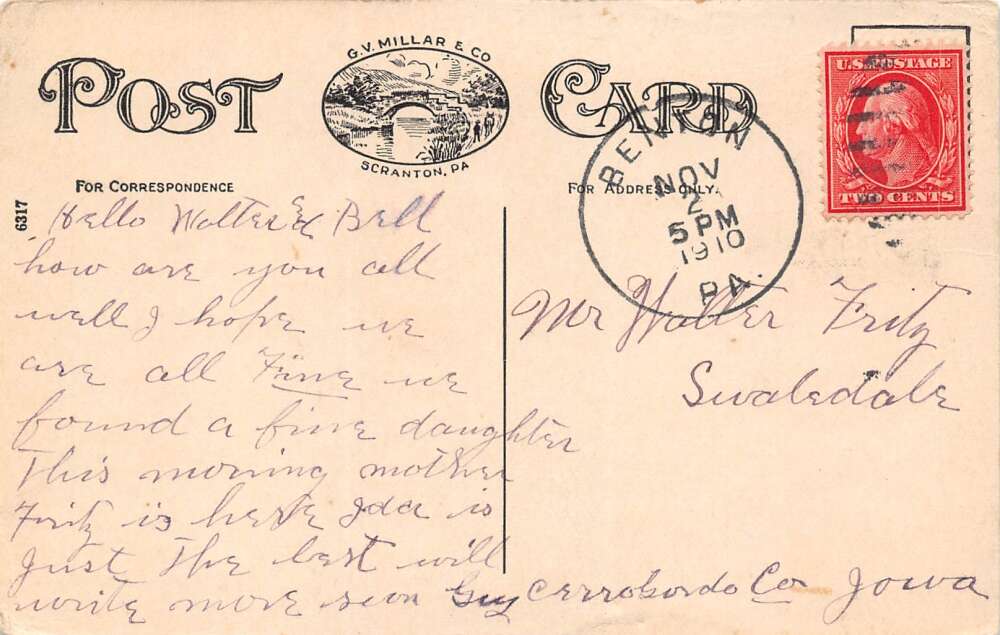 POST CARD
G.V. MILLAR & CO
SCRANTON, PA
FOR CORRESPONDENCE
FOR ADDRESS ONLY.
6317
U.S. POSTAGE
TWO CENTS
BENTON
NOV
2
5 PM
1910
PA.
Hello Walter & Bell
how are you all
well I hope we
are all Fine we
found a fine daughter
This morning mother
Fritz is here Ida is
Just The best will
write more soon Guy
Mr Walter Fritz
Swaledale
Cerro Gordo Co Iowa